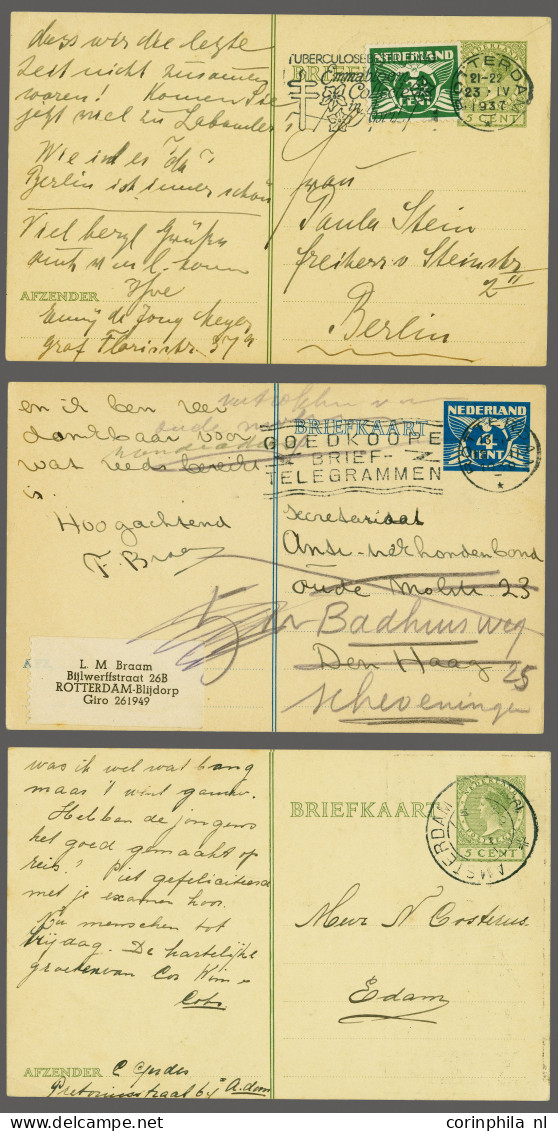 dass wir die letzte
Zeit nicht zusamen
waren! Komen Sie
jetzt viel zu
Wie ist es "da"
Berlin ist immer schön
Viel herzl Grüße
auch v.
Ihre
AFZENDER
Emmy de Jong Meyer
Graf Florisstr. 57a
TUBERCULOSE
BRIEF
Emmabloem
Collecte
in
NEDERLAND
CENT
ROTTERDAM
21-22
23 IV
1937
5 CENT
Frau
Paula Stein
freiherr v Steinstr
2 II
Berlin
en ik ben zeer
dankbaar voor
wat reeds bereikt
is.
Hoogachtend
F. Braam
vertrokken van
oude
L. M Braam
Bijlwerffstraat 26B
ROTTERDAM-Blijdorp
Giro 261949
BRIEFKAART
GOEDKOOPE
BRIEF-
TELEGRAMMEN
NEDERLAND
4
CENT
Secretariaat
Anti-trekhondenbond
oude Molstr 23
Badhuisweg
Den Haag 25
Scheveningen
was ik wel wat bang
maar 't went gauw.
Hebben de jongens
het goed gemaakt op
reis? Piet gefeliciteerd
met je examen hoor.
Nu menschen tot
Vrijdag. De hartelijke
groeten van Cor Wim
Cato
AFZENDER C Gerdes
Pretoriusstraat 64 I A.dam
BRIEFKAART
AMSTERDAM
5 CENT
Mevr N Costerus
Edam
corinphila nl